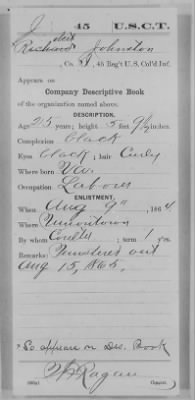 J 45 U.S.C.T.
Richard Johnston
, Co. I, 45 Reg't U.S. Col'd Inf.
Appears on
Company Descriptive Book
of the organization named above.
DESCRIPTION.
Age 25 years; height 5 feet 9½ inches.
Complexion Black
Eyes Black; hair Curly
Where born Va.
Occupation Laborer
ENLISTMENT.
When Aug 9", 1864
Where Uniontown
By whom Coulter; term 1 y'rs.
Remarks: Mustered out
Aug 15, 1865.
*So appears on Des. Book
Ragan
Copyist.